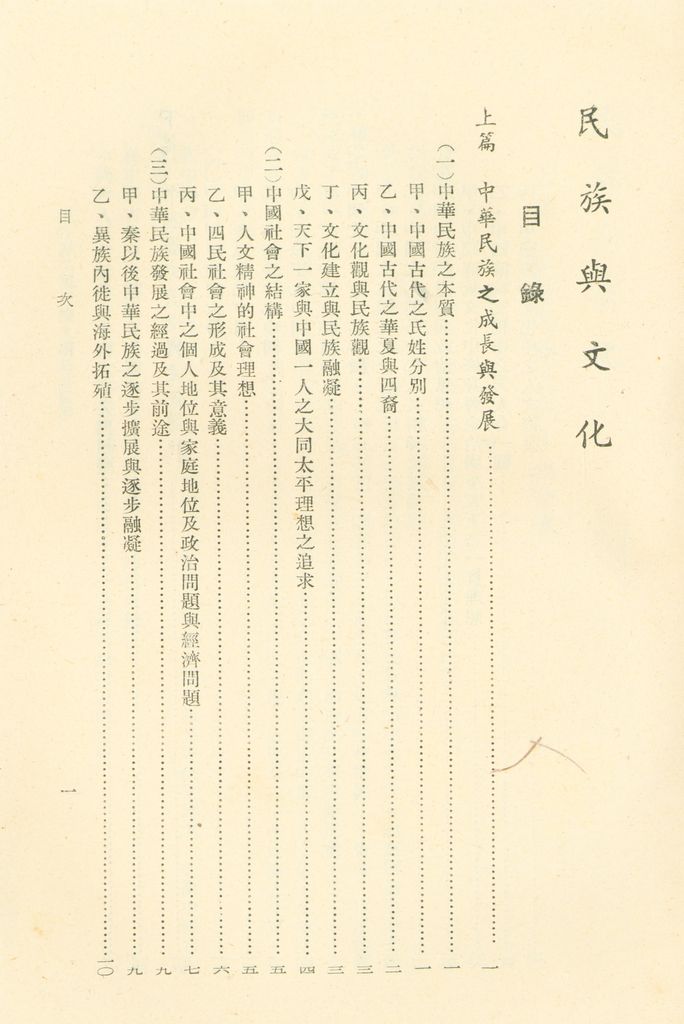 民族與文化
目錄
上篇　中華民族之成長與發展……一
(一)中華民族之本質……一
甲、中國古代之氏姓分別……一
乙、中國古代之華夏與四裔……二
丙、文化觀與民族觀……三
丁、文化建立與民族融凝……三
戊、天下一家與中國一人之大同太平理想之追求……四
(二)中國社會之結構……五
甲、人文精神的社會理想……五
乙、四民社會之形成及其意義……六
丙、中國社會中之個人地位與家庭地位及政治問題與經濟問題……七
(三)中華民族發展之經過及其前途……九
甲、秦以後中華民族之逐步擴展與逐步融凝……九
乙、異族內徙與海外拓殖……一〇
目次
一